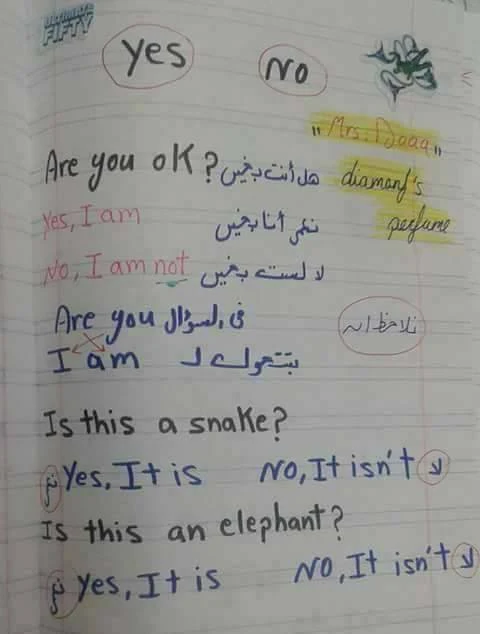 ULTIMATE
FIFTY
Yes No
"Mrs. Doaa"
diamond's
perfume
Are you ok? هل أنت بخير
Yes, I am نعم أنا بخير
No, I am not لا لست بخير
Are you في السؤال
نلاحظ أنه
I am بتتحول لـ
Is this a snake?
نعم Yes, It is No, It isn't لا
Is this an elephant?
نعم Yes, It is No, It isn't لا